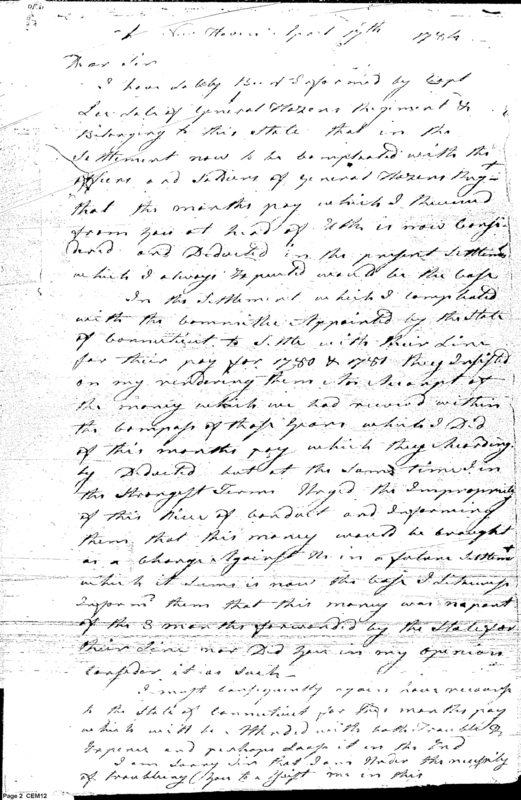 New Haven April 17th 1784
Dear Sir
I have lately Been Informed by Capt
Lee late of General Hazens Regiment &
Belonging to this State that in the
Settlement now to be Compleated with the
officers and Soldiers of General Hazens Regt
that the months pay which I Received
from you at head of Elk is now Consi
derd and Deducted in the present Settlemt
which I always Expected would be the Case
In the Settlement which I Compleated
with the Committee Appointed by the State
of Connecticut to Settle with their Line
for their pay for 1780 & 1781 they Insisted
on my rendering them An Account of
the money which we had received within
the Compass of those Years which I Did
of this months pay which they According
ly Deducted but at the Same time I in
the Strongest Terms Urged the Impropriety
of this Piece of Conduct and Informing
them that this money would be brought
as a Charge Against Us in a future Settlemt
which it Seems is now the Case I Likewise
Informd them that this money was no part
of the 3 months forwarded by the State for
their Line nor Did You in my opinion
Consider it as Such
I must Consequently again have recourse
to the State of Connecticut for this months pay
which will be Attended with both Trouble &
Expence and perhaps Loose it in the End
I am Sorry Sir that I am Under the necessity
of troubling You to assist me in this
Page 2 CEM12